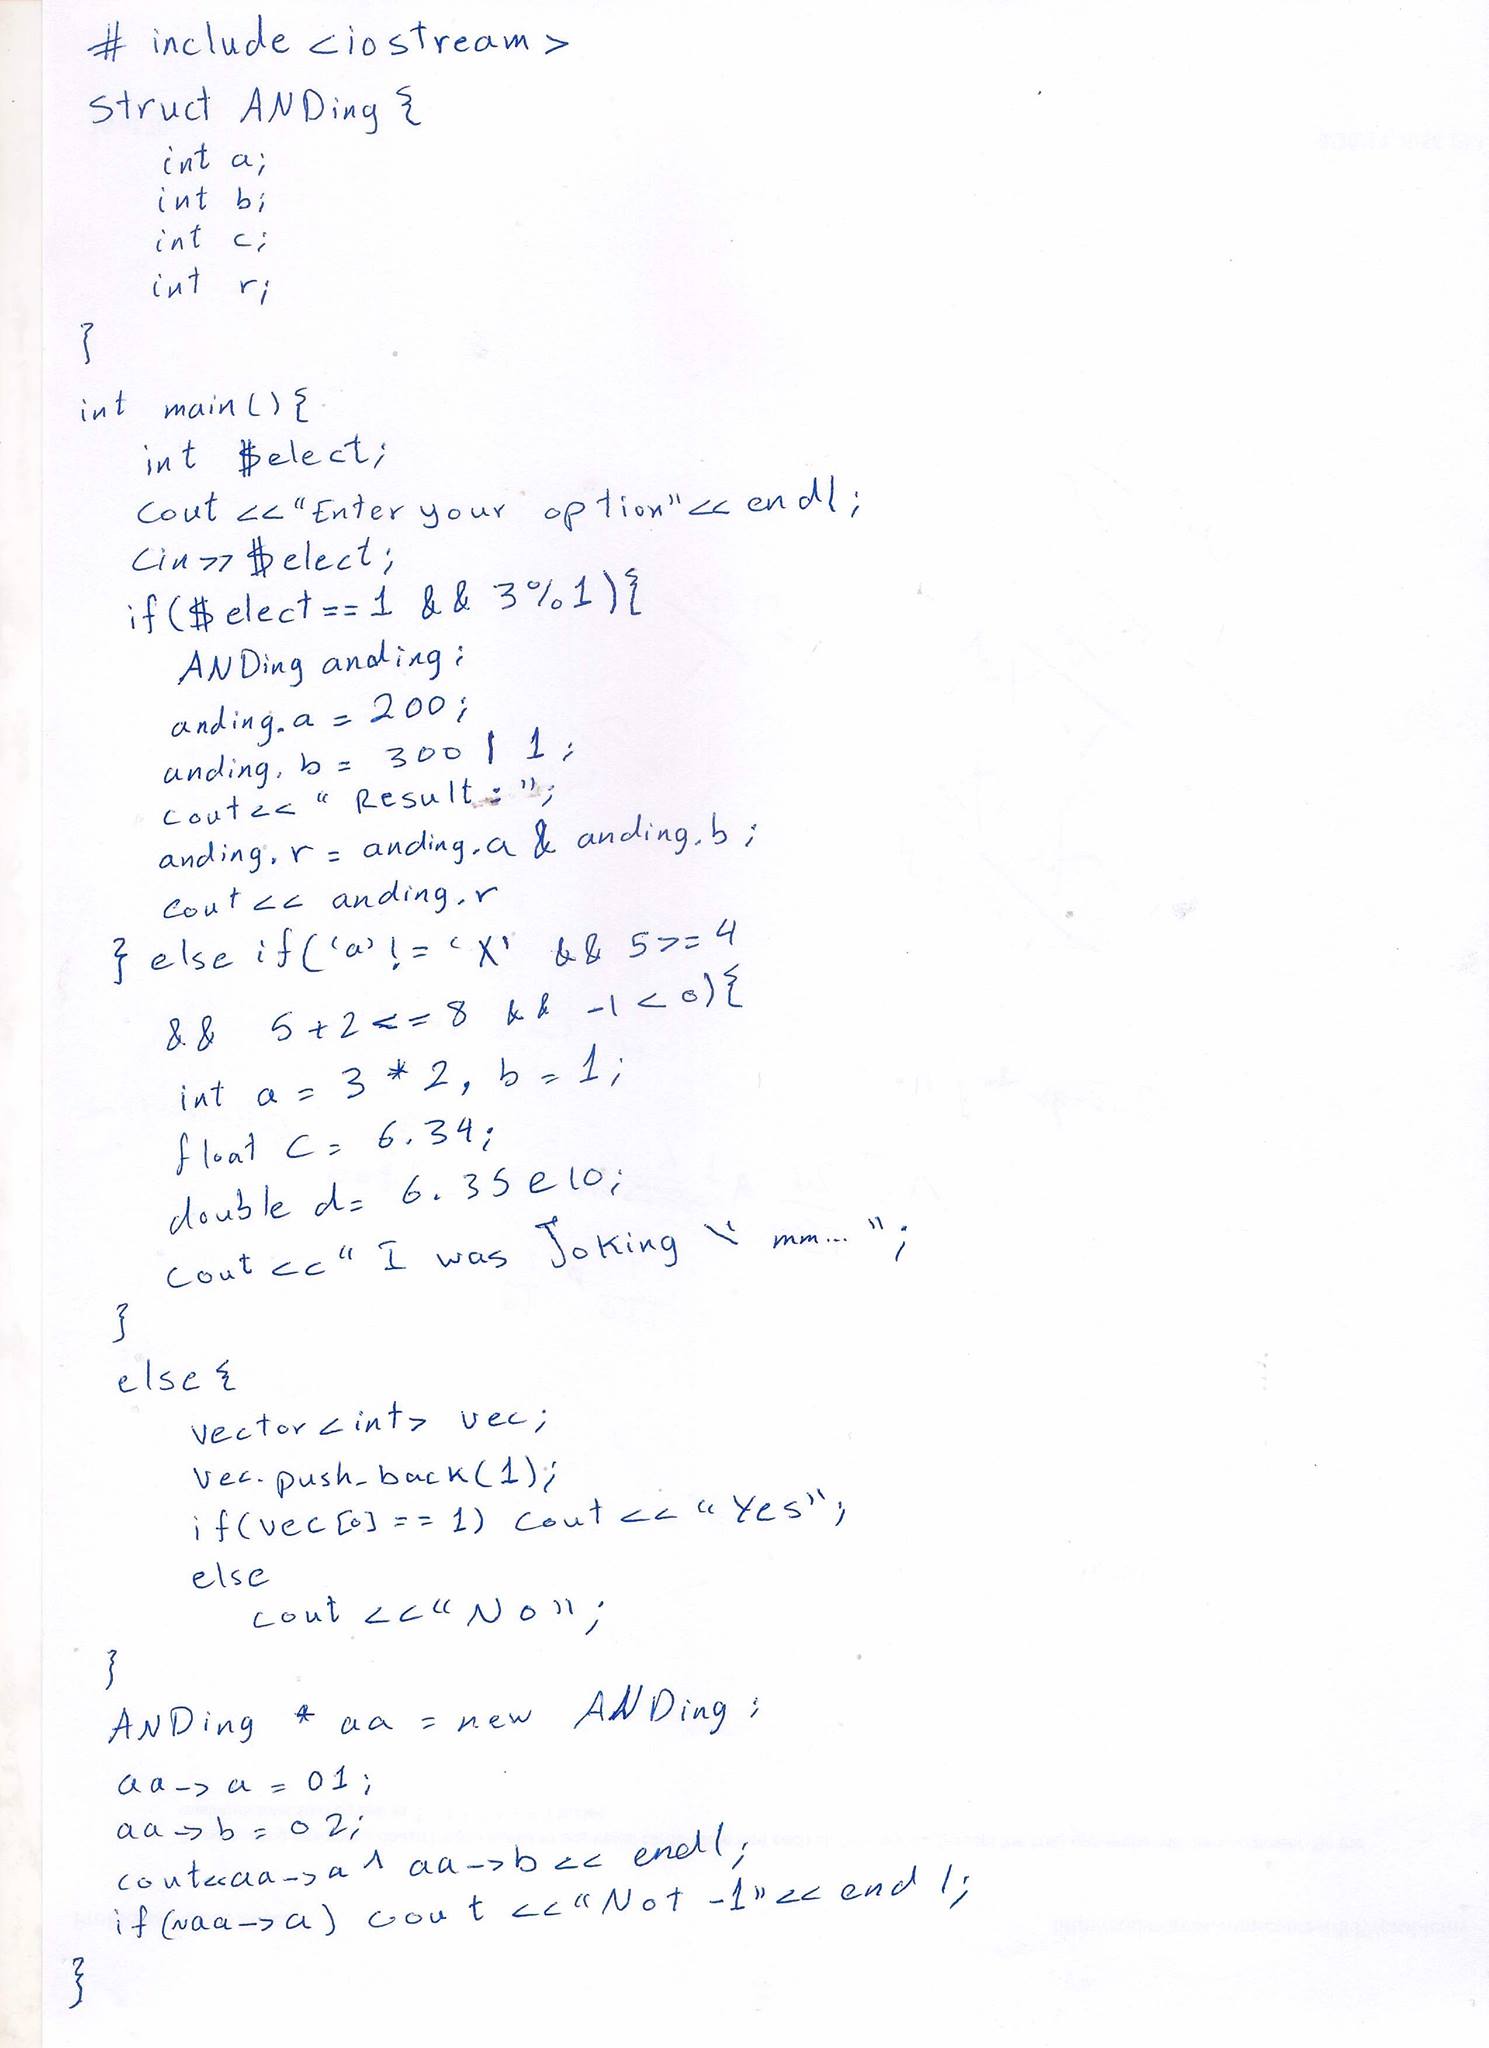 # include <iostream>
struct ANDing {
int a;
int b;
int c;
int r;
}
int main() {
int $elect;
cout << "Enter your option" << endl;
cin >> $elect;
if ($elect == 1 && 3 % 1) {
ANDing anding;
anding.a = 200;
anding.b = 300 | 1;
cout << "Result : ";
anding.r = anding.a & anding.b;
cout << anding.r
} else if ('a' != 'X' && 5 >= 4
&& 5 + 2 <= 8 && -1 < 0) {
int a = 3 * 2, b = 1;
float c = 6.34;
double d = 6.35e10;
cout << "I was Joking \" mm... ";
}
else {
vector <int> vec;
vec.push_back(1);
if(vec[0] == 1) cout << "Yes";
else
cout << "No";
}
ANDing * aa = new ANDing;
aa -> a = 01;
aa -> b = 02;
cout<<aa->a ^ aa->b << endl;
if (~aa->a) cout << "Not -1" << endl;
}